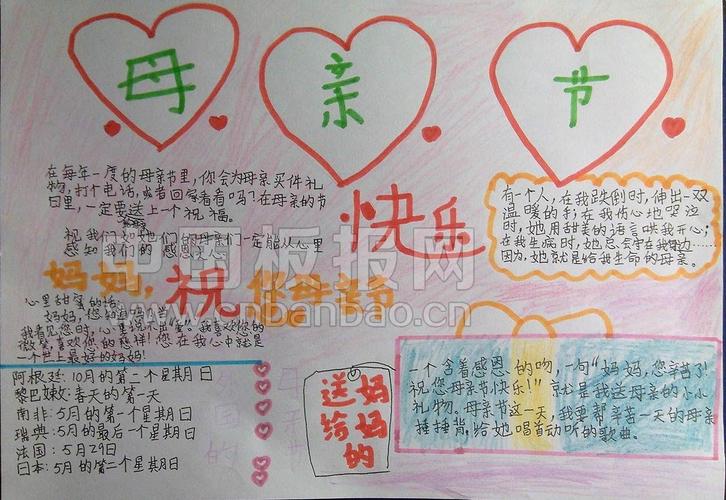 母 亲 节
快乐
在每年一度的母亲节里，你会为母亲买件礼
物，打个电话，或者回家看看吗？在母亲的节
日里，一定要送上一个祝福。
祝我们如她们的母亲们一定能从心里
感知我们的感恩
有一个人，在我跌倒时，伸出一双
温暖的手；在我伤心地哭泣
时，她用甜美的语言哄我开心；
在我生病时，她总会守在我身边……
因为，她就是给我生命的母亲。
妈妈，祝您母亲节
心里甜蜜的话：
妈妈，您知道吗？当
我看见您时，心里说不出“美”。我喜欢您的
微笑，喜欢您的慈祥！您在我心中就是
一个世上最好的妈妈！
阿根廷：10月的第二个星期日
黎巴嫩：春天的第一天
南非：5月的第一个星期日
瑞典：5月的最后一个星期日
法国：5月29日
日本：5月的第二个星期日
送给
妈妈的
一个含着感恩的吻，一句“妈妈，您辛苦了！
祝您母亲节快乐！”就是我送母亲的小小
礼物。母亲节这一天，我要帮辛苦一天的母亲
捶捶背，给她唱首动听的歌曲。
中国板报网
www.cnbanbao.cn